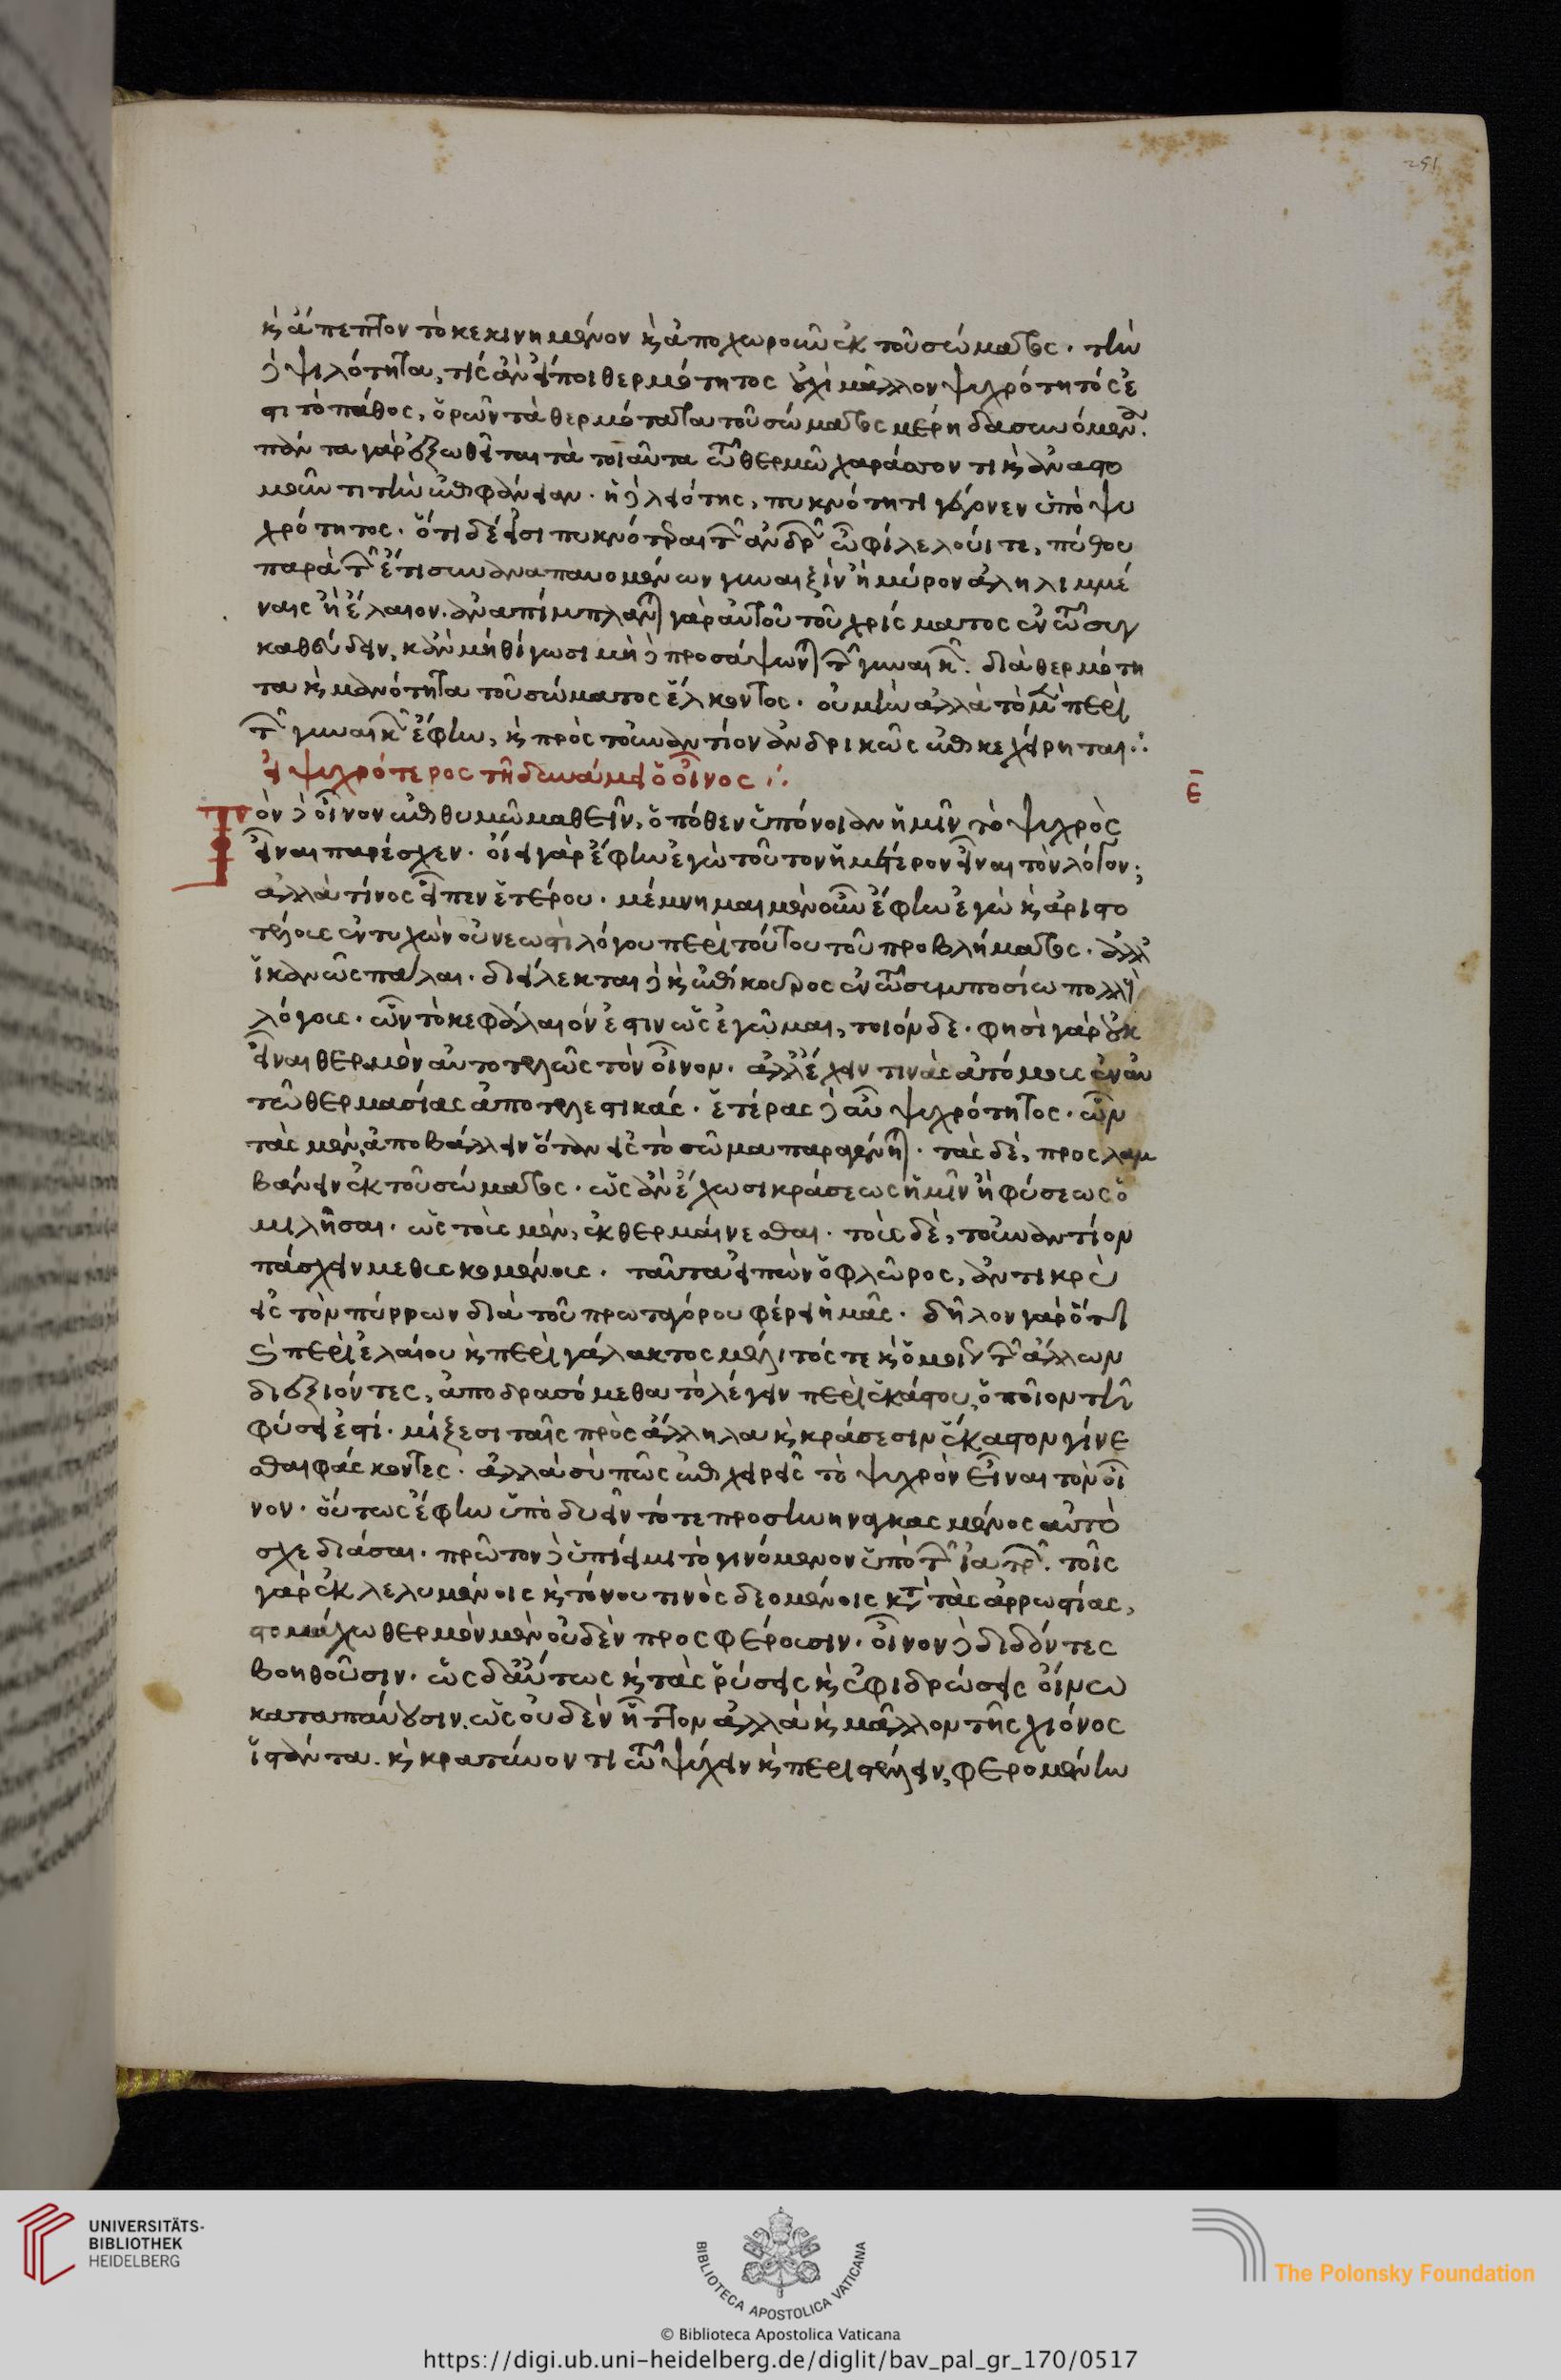 251
κ ἄπεπτον τὸ κεκινημένον κ ἀποχωροῦν ἐκ τοῦ σώματος· τὴν
δὲ ψιλότητα, τίς ἂν εἴποι θερμότητος οὐχὶ μᾶλλον ψυχρότητός ἐ
στι τὸ πάθος, ὁρῶν τὰ θερμότατα τοῦ σώματος μέρη δασυνόμενα.
πάντα γὰρ ἐξωθεῖται τὰ τοιαῦτα τῶ θερμῶ χαράσσοντι κ ἀναστο
μοῦντι τὴν ἐπιφάνειαν· ἡ δὲ λειότης, πυκνότητι γέγονεν ὑπὸ ψυ
χρότητος. ὅτι δέ εἰσι πυκνότεραι τῶν ἀνδρῶν ὦ φίλε λούιτε, πύθου
παρὰ τῶν ἔτι συναναπαυομένων γυναιξὶν ἢ μύρον ἀληλιμμέ
ναις ἢ ἔλαιον. ἀναπίμπλανται γὰρ αὐτοῦ τοῦ χρίσματος ἐν τῶ συγ
καθεύδειν, κἂν μὴ θίγωσι μὴ δὲ προσάψωνται τῶν γυναικῶν. διὰ θερμότη
τα κ μανότητα τοῦ σώματος ἕλκοντος. οὐ μὴν ἀλλὰ τὸ μὲν περὶ
τῶν γυναικῶν ἔφην, κ πρὸς τοὐναντίον ἀνδρικῶς ἐπικεχείρηται:·
εἰ ψυχρότερος τῆ δυνάμει ὁ οἶνος:·
ε
Τὸν δὲ οἶνον ἐπιθυμῶ μαθεῖν, ὁπόθεν ὑπόνοιαν ἡμῖν τὸ ψυχρὸς
εἶναι παρέσχεν. οἴει γὰρ ἔφην ἐγὼ τοῦτον ἡμέτερον εἶναι τὸν λόγον;
ἀλλὰ τίνος εἶπεν ἑτέρου. μέμνημαι μὲν οὖν ἔφην ἐγὼ κ ἀριστο
τέλους ἐντυχὼν οὐ νεωστὶ λόγου περὶ τούτου τοῦ προβλήματος. ἀλλ'
ἱκανῶς πάλαι. διείλεκται δὲ κ ἐπίκουρος ἐν τῶ συμποσίω πολλοὺς
λόγους. ὧν τὸ κεφάλαιόν ἐστιν ὡς ἐγῶμαι, τοιόνδε. φησὶ γὰρ οὐκ
εἶναι θερμὸν αὐτοτελῶς τὸν οἶνον. ἀλλ' ἔχειν τινὰς ἀτόμους ἐν αὐ
τῶ θερμασίας ἀποτελεστικάς. ἑτέρας δὲ αὖ ψυχρότητος. ὧν
τὰς μὲν, ἀποβάλλειν ὅταν εἰς τὸ σῶμα παραγένηται. τὰς δὲ, προσλαμ
βάνειν ἐκ τοῦ σώματος. ὡς ἂν ἔχωσι κράσεως ἡμῖν ἢ φύσεως ὁ
μιλῆσαι. ὡς τοὺς μὲν, ἐκθερμαίνεσθαι. τοὺς δὲ, τοὐναντίον
πάσχειν μεθυσκομένους. ταῦτα εἰπὼν ὁ φλῶρος, ἄντικρὺ
εἰς τὸν πύρρων διὰ τοῦ πρωταγόρου φέρει ἡμᾶς. δῆλον γὰρ ὅτι
κ περὶ ἐλαίου κ περὶ γάλακτος μέλιτός τε κ ὁμοίων τῶν ἄλλων
διεξιόντες, ἀποδρασόμεθα τὸ λέγειν περὶ ἑκάστου, ὁποῖον τῆ
φύσει ἐστί. μίξεσι ταῖς πρὸς ἄλληλα κ κράσεσιν ἕκαστον γίνε
σθαι φάσκοντες. ἀλλὰ σὺ πῶς ἐπιχειρεῖς τὸ ψυχρὸν εἶναι τὸν οἶ
νον. οὕτως ἔφην ὑπὸ δυεῖν τότε προσηνηναγκασμένος αὐτο
σχεδιάσαι. πρῶτον δὲ ὑπίει μι τὸ γινόμενον ὑπὸ τῶν ἰατρῶν. τοῖς
γὰρ ἐκλελυμένοις κ τόνου τινὸς δεομένοις κατὰ τὰς ἀρρωστίας,
στομάχω θερμὸν μὲν οὐδὲν προσφέρουσιν. οἶνον δὲ διδόντες
βοηθοῦσιν. ὡς δ' αὔτως κ τὰς ῥύσεις κ ἐφιδρώσεις οἴνω
καταπαύουσιν. ὡς οὐδὲν ἧττον ἀλλὰ κ μᾶλλον τῆς χιόνος
ἱστάντα. κ κρατύνοντι τῶ ψύχειν κ περιστέλλειν, φερομένην
UNIVERSITÄTS-
BIBLIOTHEK
HEIDELBERG
BIBLIOTECA APOSTOLICA VATICANA
The Polonsky Foundation
© Biblioteca Apostolica Vaticana
https://digi.ub.uni-heidelberg.de/diglit/bav_pal_gr_170/0517